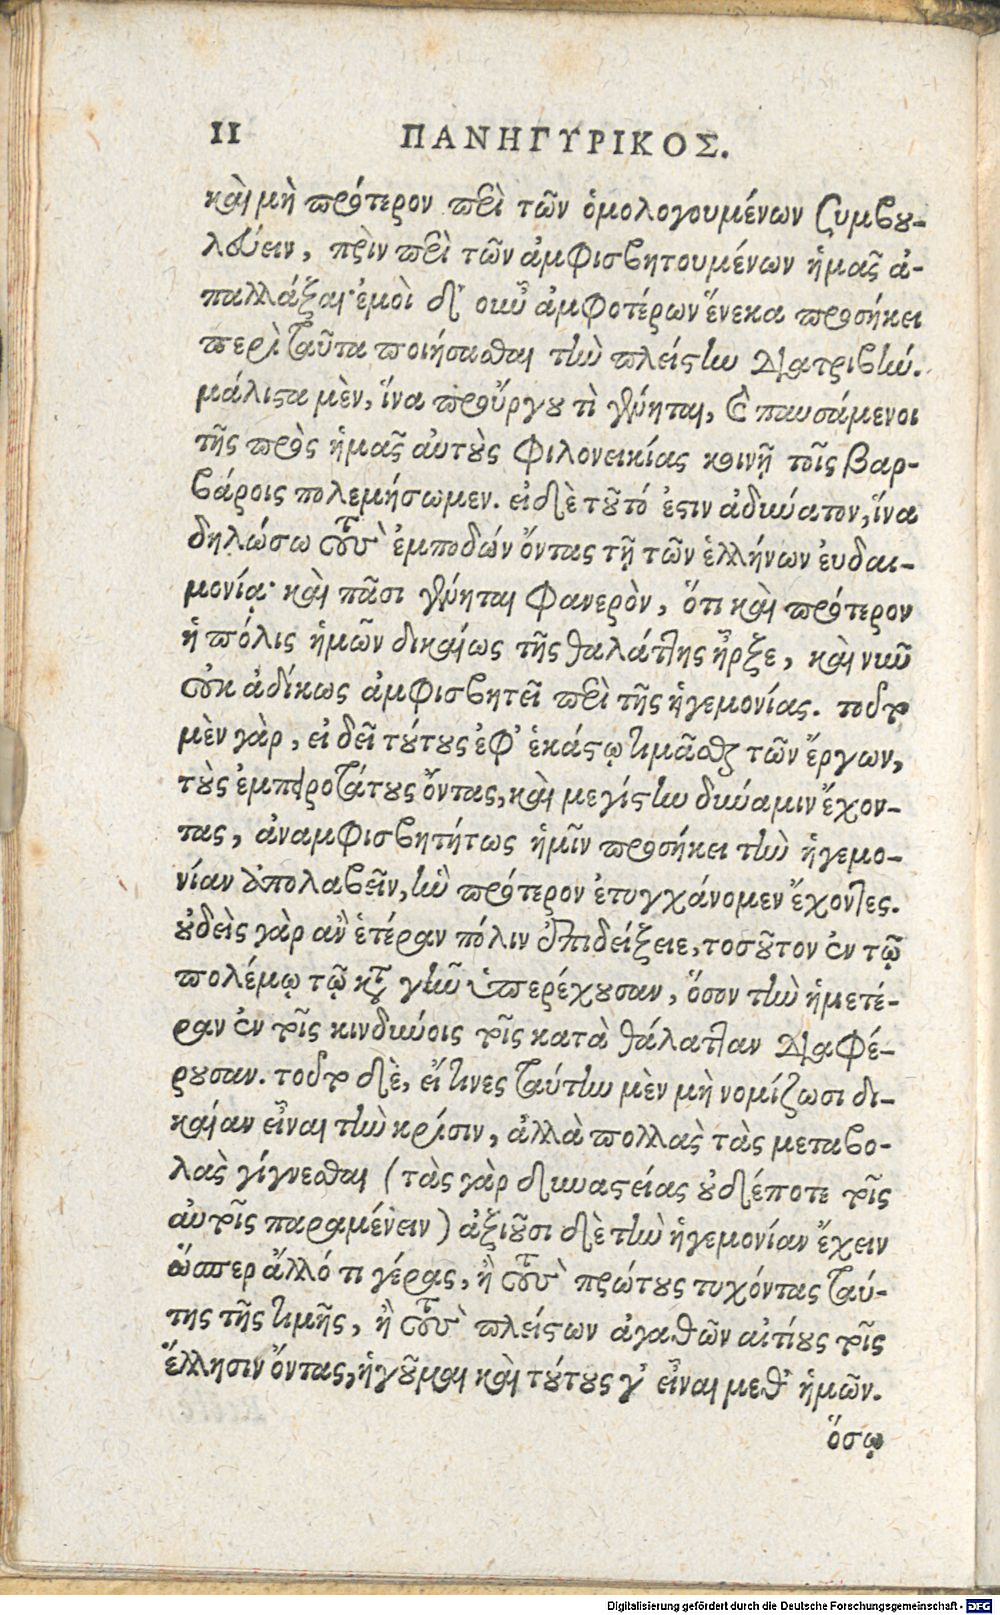 11 ΠΑΝΗΓΥΡΙΚΟΣ.
καὶ μὴ πρότερον περὶ τῶν ὁμολογουμένων ζυμβου-
λεύειν, πρὶν περὶ τῶν ἀμφισβητουμένων ἡμᾶς ἀ-
παλλάξαι· ἐμοὶ δ' οὖν ἀμφοτέρων ἕνεκα προσήκει
περὶ ταῦτα ποιήσασθαι τὴν πλείστην διατριβήν.
μάλιστα μὲν, ἵνα προὔργου τὶ γένηται, καὶ παυσάμενοι
τῆς πρὸς ἡμᾶς αὐτοὺς φιλονεικίας κοινῇ τοῖς βαρ-
βάροις πολεμήσωμεν. εἰ δὲ τοῦτό ἐστιν ἀδύνατον, ἵνα
δηλώσω τοὺς ἐμποδὼν ὄντας τῇ τῶν ἑλλήνων εὐδαι-
μονίᾳ· καὶ πᾶσι γένηται φανερὸν, ὅτι καὶ πρότερον
ἡ πόλις ἡμῶν δικαίως τῆς θαλάττης ἦρξε, καὶ νῦν
οὐκ ἀδίκως ἀμφισβητεῖ περὶ τῆς ἡγεμονίας. τοῦτο
μὲν γὰρ, εἰ δεῖ τούτους ἐφ' ἑκάστῳ τιμᾶσθαι τῶν ἔργων,
τοὺς ἐμπειροτάτους ὄντας, καὶ μεγίστην δύναμιν ἔχον-
τας, ἀναμφισβητήτως ἡμῖν προσήκει τὴν ἡγεμο-
νίαν ἀπολαβεῖν, ἣν πρότερον ἐτυγχάνομεν ἔχοντες.
οὐδεὶς γὰρ ἂν ἑτέραν πόλιν ἐπιδείξειε, τοσοῦτον ἐν τῷ
πολέμῳ τῷ κατὰ γῆν ὑπερέχουσαν, ὅσον τὴν ἡμετέ-
ραν ἐν τοῖς κινδύνοις τοῖς κατὰ θάλατταν διαφέ-
ρουσαν. τοῦτο δὲ, εἴ τινες ταύτην μὲν μὴ νομίζωσι δι-
καίαν εἶναι τὴν κρίσιν, ἀλλὰ πολλὰς τὰς μεταβο-
λὰς γίγνεσθαι (τὰς γὰρ δυναστείας οὐδέποτε τοῖς
αὐτοῖς παραμένειν) ἀξιοῦσι δὲ τὴν ἡγεμονίαν ἔχειν
ὥσπερ ἄλλό τι γέρας, ἢ τοὺς πρώτους τυχόντας ταύ-
της τῆς τιμῆς, ἢ τοὺς πλείστων ἀγαθῶν αἰτίους τοῖς
ἕλλησιν ὄντας, ἡγοῦμαι καὶ τούτους γ' εἶναι μεθ' ἡμῶν.
ὅσῳ
Digitalisierung gefördert durch die Deutsche Forschungsgemeinschaft - DFG